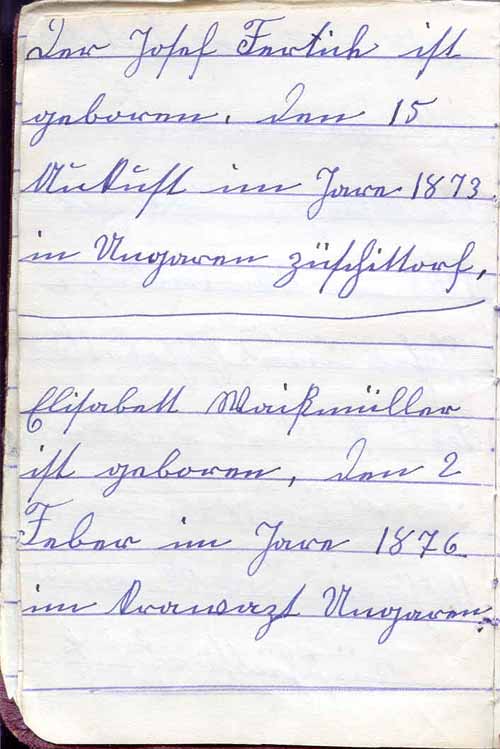 Der Josef Fertich ist
geboren. den 15
Aukust im Jare 1873
in Ungaren züschittorf,
Elisabett Waißmüller
ist geboren, den 2
Feber im Jare 1876
im Krawazt Ungaren